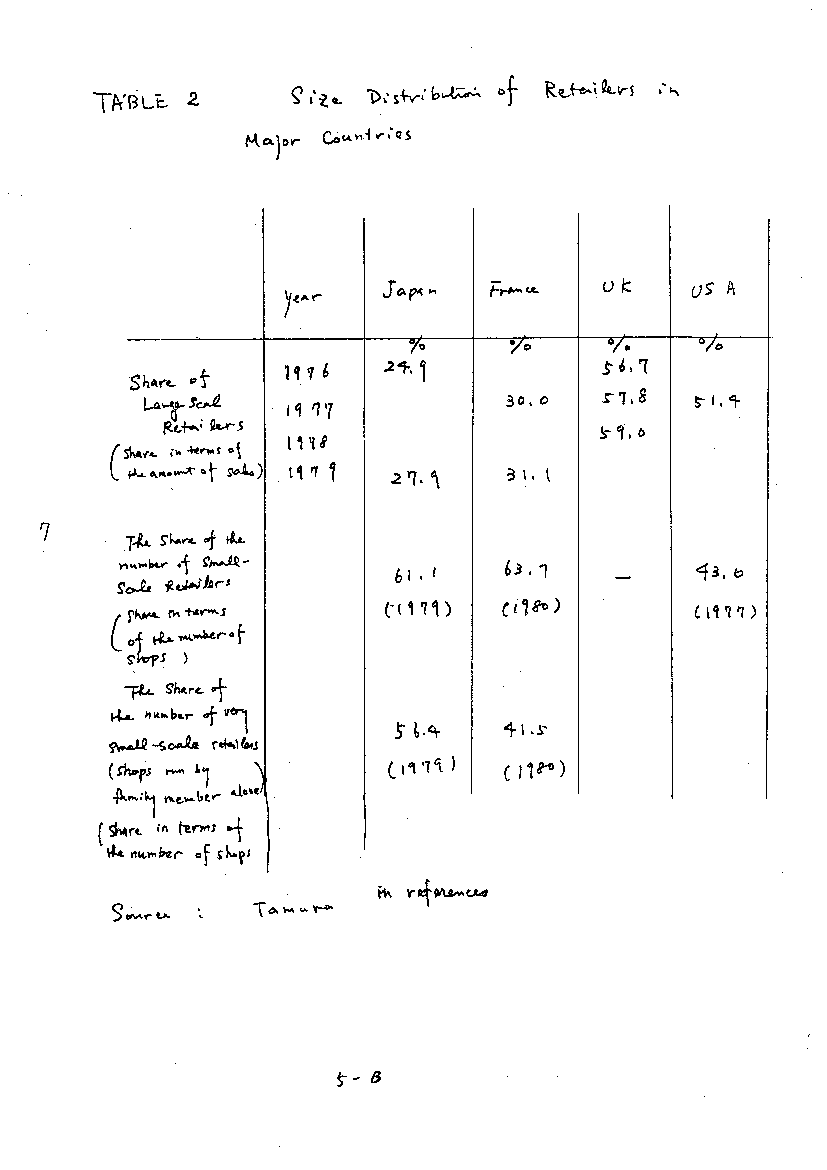 TABLE 2 Size Distribution of Retailers in
Major Countries
Year Japan France UK USA
% % % %
Share of 1976 24.9 56.7
Large Scal 1977 30.0 57.8 51.4
Retailers 1978 59.0
(Share in terms of
the amount of sales) 1979 27.9 31.1
7
The Share of the
number of Small-
Scale Retailers 61.1 63.7 — 43.0
(Share in terms (1979) (1980) (1977)
of the number of
shops )
The Share of
the number of very
small-scale retailers 56.4 41.5
(shops run by (1979) (1980)
family member alone)
(Share in terms of
the number of shops
Source : Tamura in references
5 - B